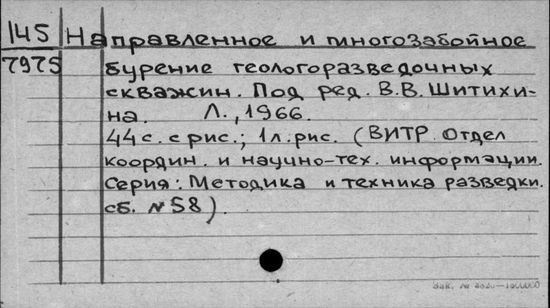 145 Направленное и многозабойное
7975 бурение геологоразведочных
скважин. Под ред. В.В. Шитихи-
на. Л., 1966.
44 с. с рис.; 1 л. рис. (ВИТР. Отдел
координ. и научно-тех. информации.
Серия: Методика и техника разведки.
сб. №58).
Зак. №